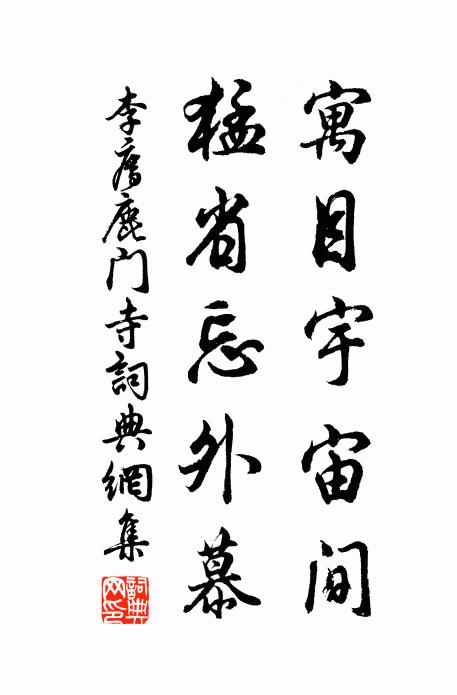 寓目宇宙间
猛省忘外慕
李廌鹿门寺詞典網集
詞典网印